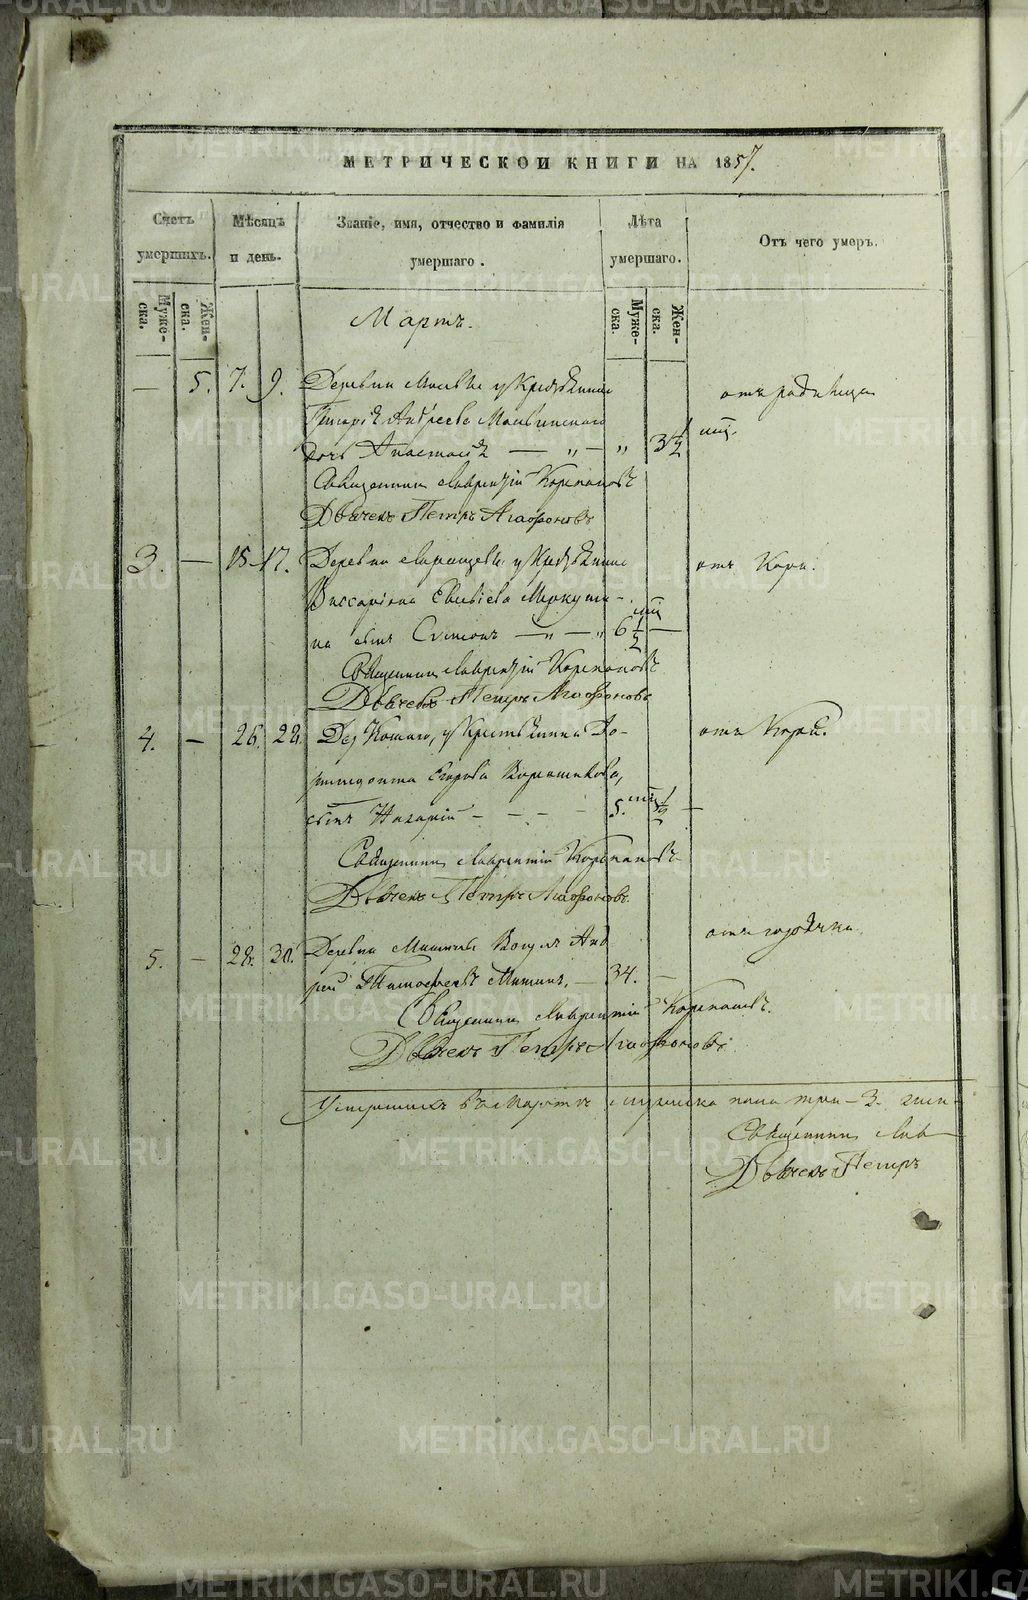 МЕТРИЧЕСКОЙ КНИГИ НА 1857.
Счетъ умершихъ.
Мѣсяцъ и день.
Званіе, имя, отчество и фамилія умершаго.
Лѣта умершаго.
Отъ чего умеръ.
Муже-ска.
Жен-ска.
Муже-ска.
Жен-ска.
Мартъ.
— 5. 7. 9. Деревни у Крестьянина
Григорія Андреева
дочь Анастасія — „ — „ 3 1/2
отъ родимца
Священникъ Лаврентій Корепановъ
Дьячекъ Петръ Агафоновъ
3. — 15. 17. Деревни у Крестьянина отъ Кори.
Виссаріона Евсѣева Меркуши-
на сынъ Симеонъ — „ — „ 6 1/2 —
Священникъ Лаврентій Корепановъ
Дьячекъ Петръ Агафоновъ
4. — 26. 28. Дер. у Крестьянина До- отъ Кори.
римедонта Егорова
сынъ Назарій — — — 5. 1/2 —
Священникъ Лаврентій Корепановъ
Дьячекъ Петръ Агафоновъ.
5. — 28. 30. Деревни Мишиной Вогулъ Анд отъ горячки.
рей Тимофеевъ Мишинъ, — 34. —
Священникъ Лаврентій Корепановъ.
Дьячекъ Петръ Агафоновъ.
Умершихъ въ Мартѣ мужеска пола три — 3. жен-
Священникъ Лав
Дьячекъ Петръ
METRIKI.GASO-URAL.RU